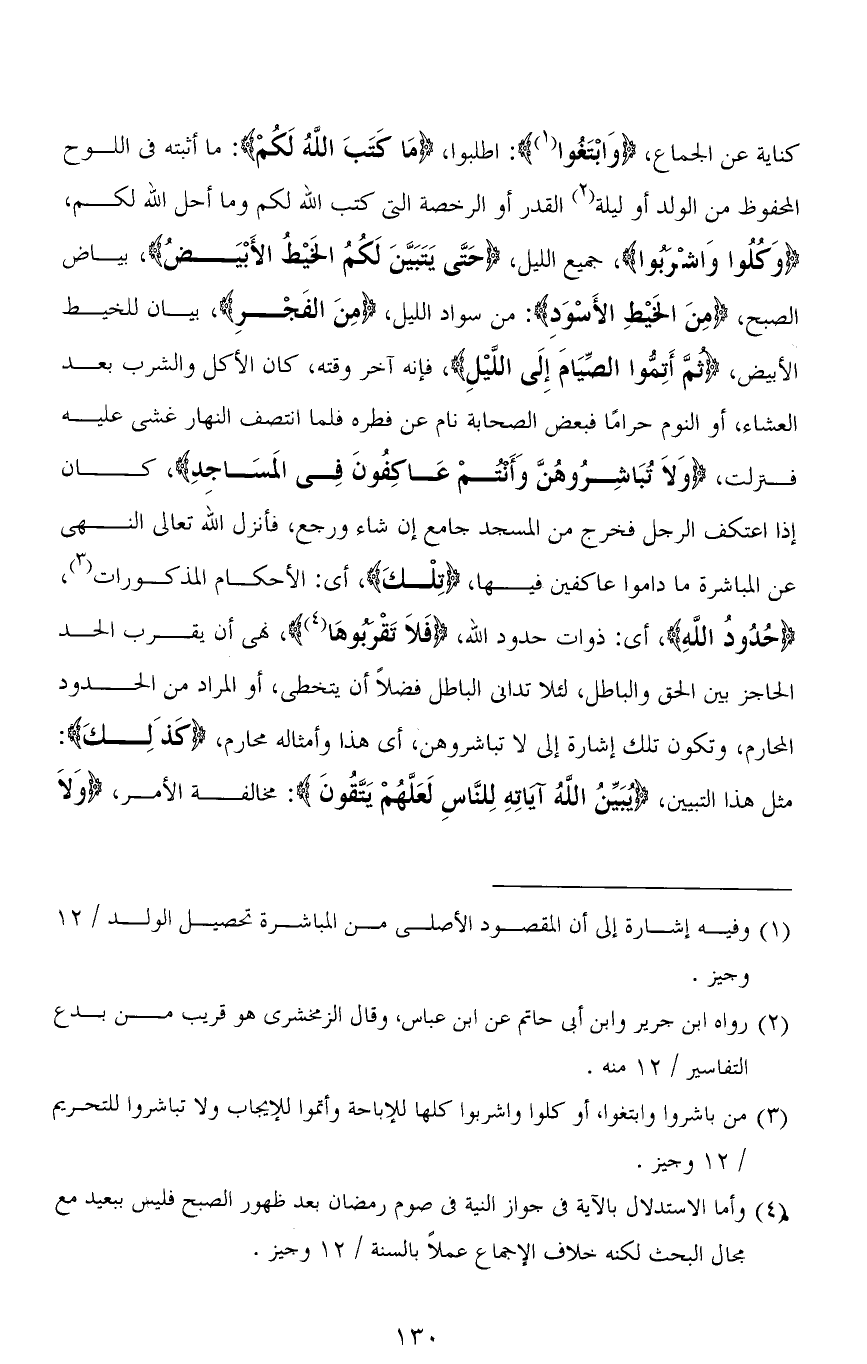 كناية عن الجماع، ﴿وَابْتَغُوا(١)﴾: اطلبوا، ﴿مَا كَتَبَ اللَّهُ لَكُمْ﴾: ما أثبته فى اللـوح
المحفوظ من الولد أو ليلة(٢) القدر أو الرخصة التى كتب الله لكم وما أحل الله لكـــم،
﴿وَكُلُوا وَاشْرَبُوا﴾، جميع الليل، ﴿حَتَّى يَتَبَيَّنَ لَكُمُ الخَيْطُ الأَبْيَـــضُ﴾، بيـاض
الصبح، ﴿مِنَ الخَيْطِ الأَسْوَدِ﴾: من سواد الليل، ﴿مِنَ الفَجْـــرِ﴾، بيـان للخيـط
الأبيض، ﴿ثُمَّ أَتِمُّوا الصِّيَامَ إِلَى اللَّيْلِ﴾، فإنه آخر وقته، كان الأكل والشرب بعـد
العشاء، أو النوم حرامًا فبعض الصحابة نام عن فطره فلما انتصف النهار غشى عليـه
فـنزلت، ﴿وَلَا تُبَاشِـرُوهُنَّ وَأَنْتُـمْ عَـاكِفُونَ فِـى المَسَـاجِدِ﴾، كـــان
إذا اعتكف الرجل فخرج من المسجد جامع إن شاء ورجع، فأنزل الله تعالى النـهى
عن المباشرة ما داموا عاكفين فيـها، ﴿تِلْـكَ﴾، أى: الأحكـام المذكـورات(٣)،
﴿حُدُودُ اللَّهِ﴾، أى: ذوات حدود الله، ﴿فَلَا تَقْرَبُوهَا(٤)﴾، نهى أن يقـرب الحـد
الحاجز بين الحق والباطل، لئلا تدانى الباطل فضلاً أن يتخطى، أو المراد من الحـدود
المحارم، وتكون تلك إشارة إلى لا تباشروهن، أى هذا وأمثاله محارم، ﴿كَذَلِـــكَ﴾:
مثل هذا التبيين، ﴿يُبَيِّنُ اللَّهُ آيَاتِهِ لِلنَّاسِ لَعَلَّهُمْ يَتَّقُونَ﴾: مخالفـة الأمـر، ﴿وَلَا
(١) وفيـه إشـارة إلى أن المقصـود الأصلـى مـن المباشـرة تحصيـل الولـد / ١٢
وجيز .
(٢) رواه ابن جرير وابن أبى حاتم عن ابن عباس، وقال الزمخشرى هو قريب مـن بـدع
التفاسير / ١٢ منه .
(٣) من باشروا وابتغوا، أو كلوا واشربوا كلها للإباحة وأتموا للإيجاب ولا تباشروا للتحريم
/ ١٢ وجيز .
(٤) وأما الاستدلال بالآية فى جواز النية فى صوم رمضان بعد ظهور الصبح فليس ببعيد مع
مجال البحث لكنه خلاف الإجماع عملاً بالسنة / ١٢ وجيز .
١٣٠